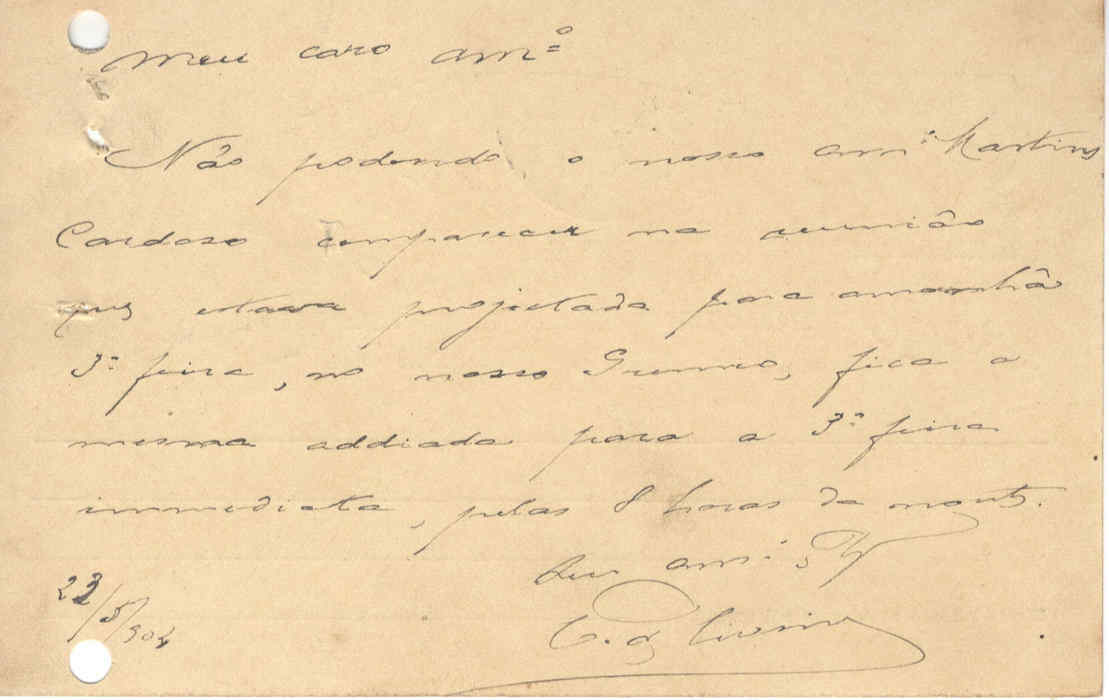 Meu caro am.º
Não podendo o nosso am.º Martins
Cardoso comparecer na reunião
que estava projectada para amanhã
3ª feira, no nosso Gremio, fica a
mesma addiada para a 3ª feira
immediata, pelas 8 horas da noute.
am.º
23/5/904